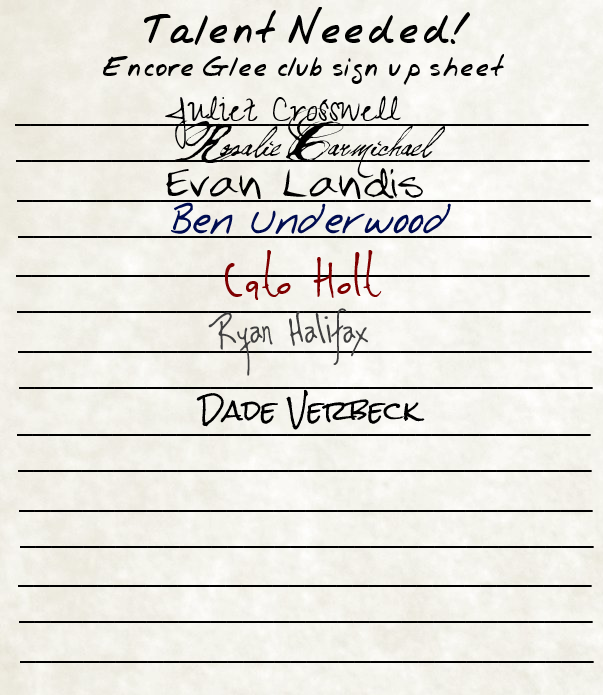 Talent Needed!
Encore Glee club sign up sheet
Juliet Crosswell
Rosalie Carmichael
Evan Landis
Ben Underwood
Cato Holt
Ryan Halifax
Dade Verbeck